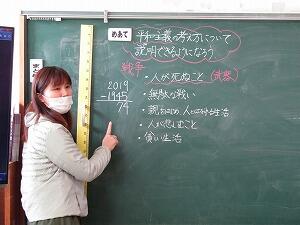 めあて
平和主義の考え方について
説明できるようになろう
戦争
・人が死ぬこと(武器)
・無駄な戦い
・親をはじめ、人と別れる生活
・人が悲しむこと
・貧しい生活
2019
-1945
74